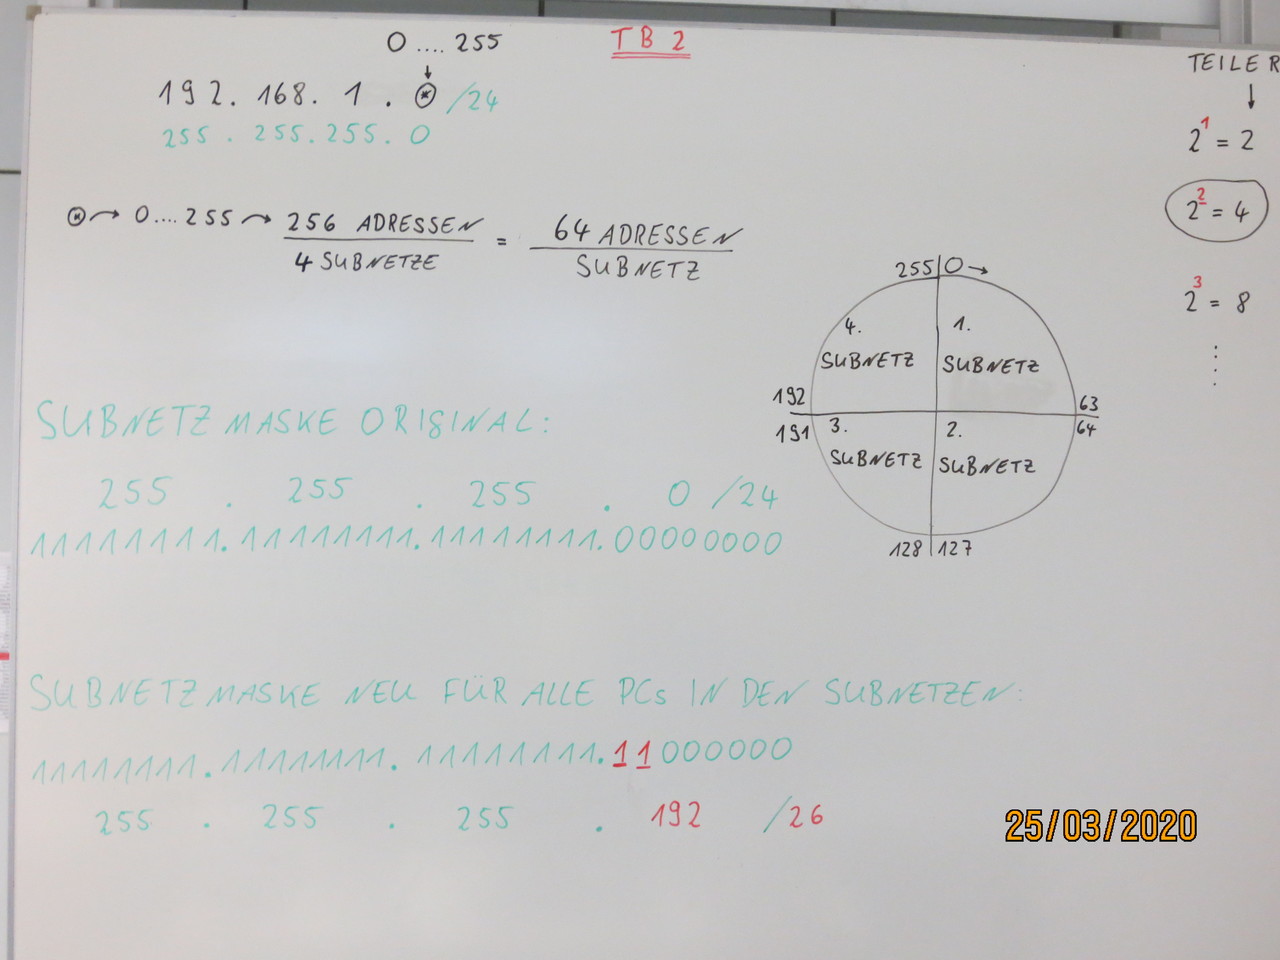 TB2
0 .... 255
192. 168. 1 . ⊛ /24
255 . 255. 255. 0
TEILER
↓
2¹ = 2
2² = 4
2³ = 8
⊛→ 0.... 255 → 256 ADRESSEN
4 SUBNETZE
= 64 ADRESSEN
SUBNETZ
255|0→
4.
SUBNETZ
1.
SUBNETZ
192
63
191
64
3.
SUBNETZ
2.
SUBNETZ
128|127
SUBNETZMASKE ORIGINAL:
255 . 255 . 255 . 0 /24
11111111.11111111.11111111.00000000
SUBNETZMASKE NEU FÜR ALLE PCs IN DEN SUBNETZEN:
11111111.11111111.11111111.11000000
255 . 255 . 255 . 192 /26
25/03/2020